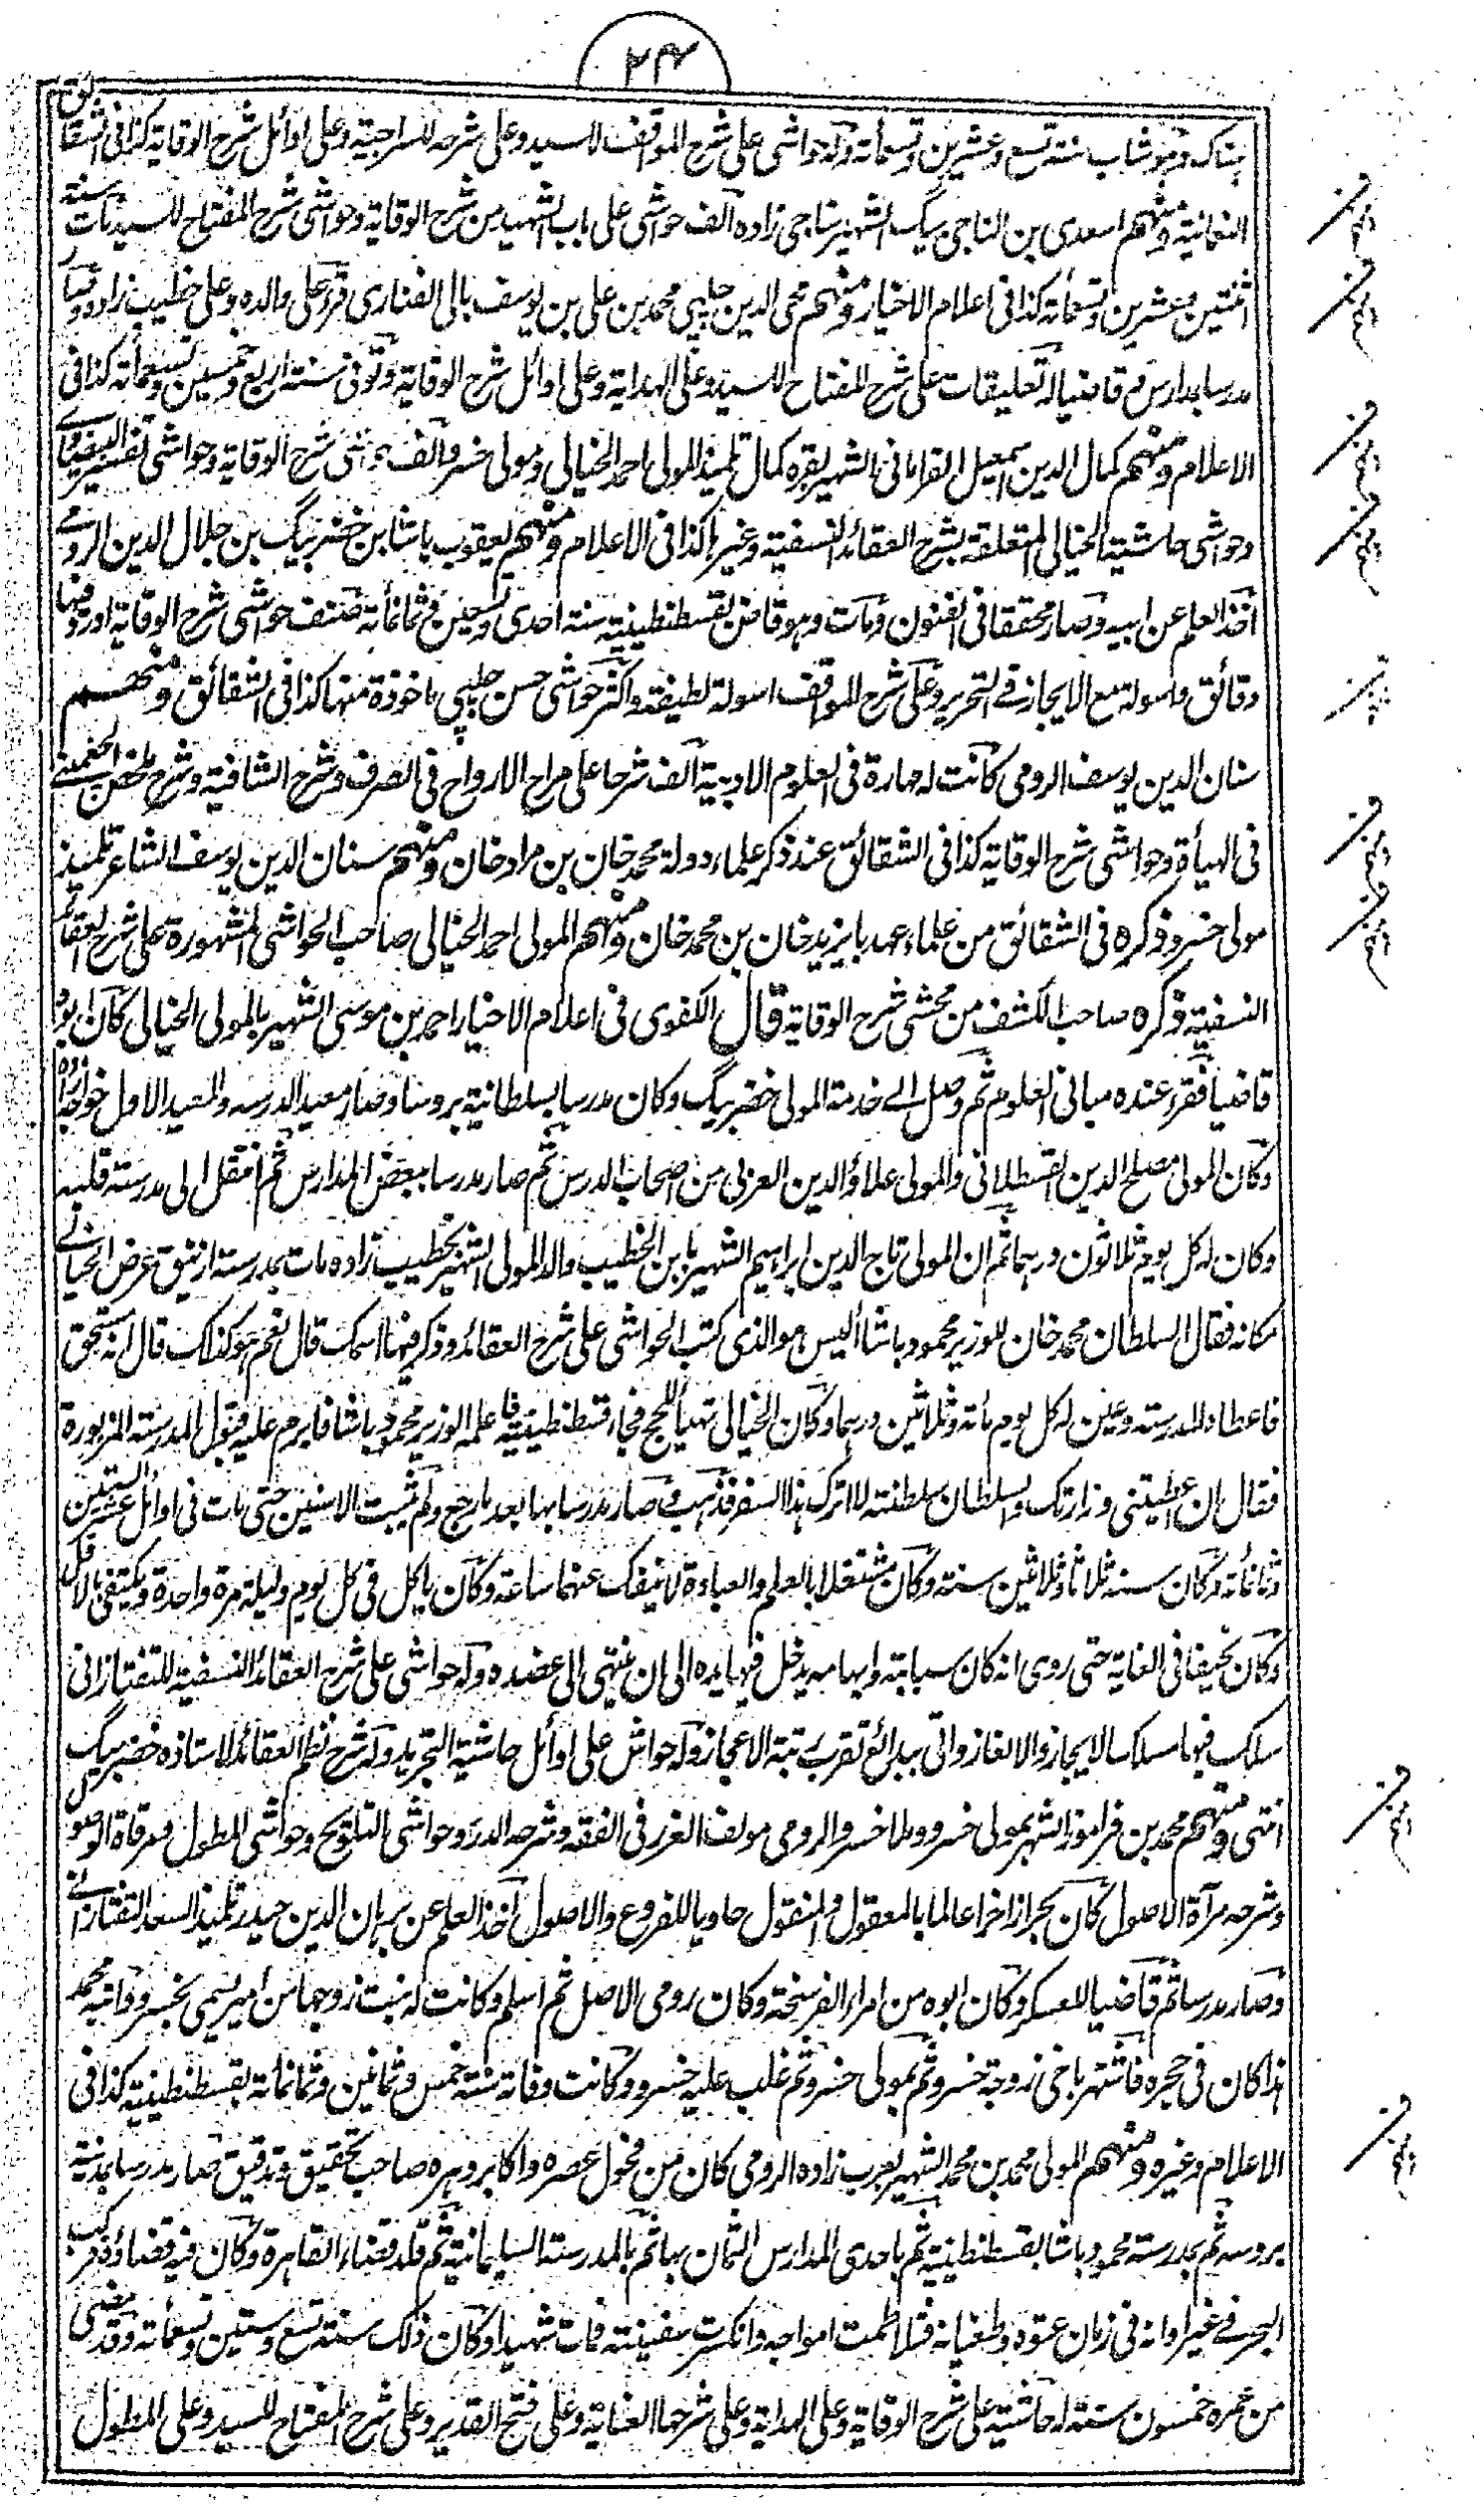 ٢٤
هناك وهو شاب سنة تسع وعشرين وتسعمأته وله حواشى على شرح المواقف للسيد وعلى شرحه للسراجية وعلى اوائل شرح الوقاية كذا فى الشقائق
النعمانية ومنهم اسعدى بن الناجى بيك الشهير بناجى زاده الف حواشى على باب الشهيد من شرح الوقاية وحواشى شرح المفتاح للسيد مات سنة
اثنتين وعشرين وتسعمأته كذا فى اعلام الاخيار ومنهم محى الدين چلپى محمد بن على بن يوسف بالى الفنارى قرء على والده وعلى خطيب زاده وصار
مدرسا بمدارس ثم قاضيا له تعليقات على شرح المفتاح للسيد وعلى الهداية وعلى اوائل شرح الوقاية وتوفى سنة اربع وخمسين وتسعمأته كذا فى
الاعلام ومنهم كمال الدين اسمعيل القرامانى الشهير بقره كمال تلميذ المولى احمد الخيالى ومولى خسرو الف حواشى شرح الوقاية وحواشى تفسير البيضاوى
وحواشى حاشية الخيالى المتعلقة بشرح العقائد النسفية وغيرها كذا فى الاعلام ومنهم يعقوب باشا بن خضر بيگ بن جلال الدين الرومى
اخذ العلم عن ابيه وصار محققا فى الفنون ومات وهو قاض بقسطنطينية سنة احدى وتسعين وثمانمأته صنف حواشى شرح الوقاية اورد فيها
دقائق واسولة مع الايجاز فى التحرير وعلى شرح المواقف اسولة لطيفة واكثر حواشى حسن چلپى ماخوذة منها كذا فى الشقائق ومنهم
سنان الدين يوسف الرومى كانت له مهارة فى العلوم الادبية الف شرحا على مراح الارواح فى الصرف وشرح الشافية وشرح ملخص الجغمينى
فى الهيأة وحواشى شرح الوقاية كذا فى الشقائق عند ذكر علماء دولة محمد خان بن مراد خان ومنهم سنان الدين يوسف الشاعر تلميذ
مولى خسرو ذكره فى الشقائق من علماء عهد بايزيد خان بن محمد خان ومنهم المولى احمد الخيالى صاحب الحواشى المشهورة على شرح العقائد
النسفية ذكره صاحب الكشف من محشى شرح الوقاية قال الكفوى فى اعلام الاخيار احمد بن موسى الشهير بالمولى الخيالى كان ابوه
قاضيا فقرء عنده مبانى العلوم ثم وصل الى خدمة المولى خضر بيگ وكان مدرسا بسلطانية بروسا وصار معيد الدرسه والمعيد الاول خواجه زاده
وكان المولى مصلح الدين القسطلانى والمولى علاؤ الدين العربى من اصحاب الدرس ثم صار مدرسا ببعض المدارس ثم انتقل الى مدرسة فلبه
وكان له كل يوم ثلاثون درهما ثم ان المولى تاج الدين ابراهيم الشهير بابن الخطيب والد المولى الشهير بخطيب زاده مات بمدرسة ازنيق عرض الخيالى
مكانه فقال السلطان محمد خان للوزير محمود باشا أليس هو الذى كتب الحواشى على شرح العقائد وذكر فيها اسمك قال نعم هو كذلك قال انه مستحق
فاعطاه المدرسة وعين له كل يوم مأته وثلاثين درهما وكان الخيالى تهيأ للحج فجاء قسطنطينية فاعلمه الوزير محمود باشا فابرم عليه قبول المدرسة المزبورة
فقال ان اعطيتنى وزارتك والسلطان سلطنته لا اترك هذا السفر فذهب وصار مدرسا بها بعد ما رجع ولم يثبت الا سنين حتى مات فى اوائل عشر الستين
وثمانمأته وكان سنه ثلاثا وثلاثين سنة وكان مشتغلا بالعلم والعبادة لا ينفك عنهما ساعة وكان ياكل فى كل يوم وليلة مرة واحدة ويكتفى بالاقل
وكان نحيفا فى الغاية حتى روى انه كان سبابته وابهامه يدخل فيها يده الى ان ينتهى الى عضده وله حواشى على شرح العقائد النسفية للتفتازانى
سلك فيها مسلك الايجاز والالغاز واتى ببدائع تقرب رتبة الاعجاز وله حواش على اوائل حاشية التجريد وله شرح نظم العقائد لاستاذه خضر بيگ
انتهى ومنهم محمد بن فراموز الشهير بمولى خسرو وملا خسرو الرومى مولف الغرر فى الفقه وشرحه الدرر وحواشى التلويح وحواشى المطول ومرقاة الوصول
وشرحه مرآة الاصول كان بحرا زاخرا عالما بالمعقول والمنقول حاويا للفروع والاصول اخذ العلم عن برهان الدين حيدر تلميذ السعد التفتازانى
وصار مدرسا ثم قاضيا للعسكر وكان ابوه من امراء الفرسخة وكان رومى الاصل ثم اسلم وكانت له بنت زوجها من أمير يسمى بخسرو وابنه محمد
هذا كان فى حجره فاشتهر باخى زوجة خسرو ثم بمولى خسرو ثم غلب عليه خسرو وكانت وفاته سنة خمس وثمانين وثمانمأته بقسطنطينية كذا فى
الاعلام وغيره ومنهم المولى محمد بن محمد الشهير بعرب زاده الرومى كان من فحول عصره واكابر دهره صاحب تحقيق وتدقيق صار مدرسا بمدينة
بروسه ثم بمدرسة محمود باشا بقسطنطينية ثم باحدى المدارس الثمان بها ثم بالمدرسة السليمانية ثم قلد قضاء القاهرة وكان فيه قضاؤه فركب
البحر فى غير اوانه فى زمان عتوه وطغيانه فتلاطمت امواجه وانكسرت سفينته فمات شهيدا وكان ذلك سنة تسع وستين وتسعمأته وقد مضى
من عمره خمسون سنة له حاشية على شرح الوقاية وعلى الهداية وعلى شرحها العناية وعلى فتح القدير وعلى شرح المفتاح للسيد وعلى المطول